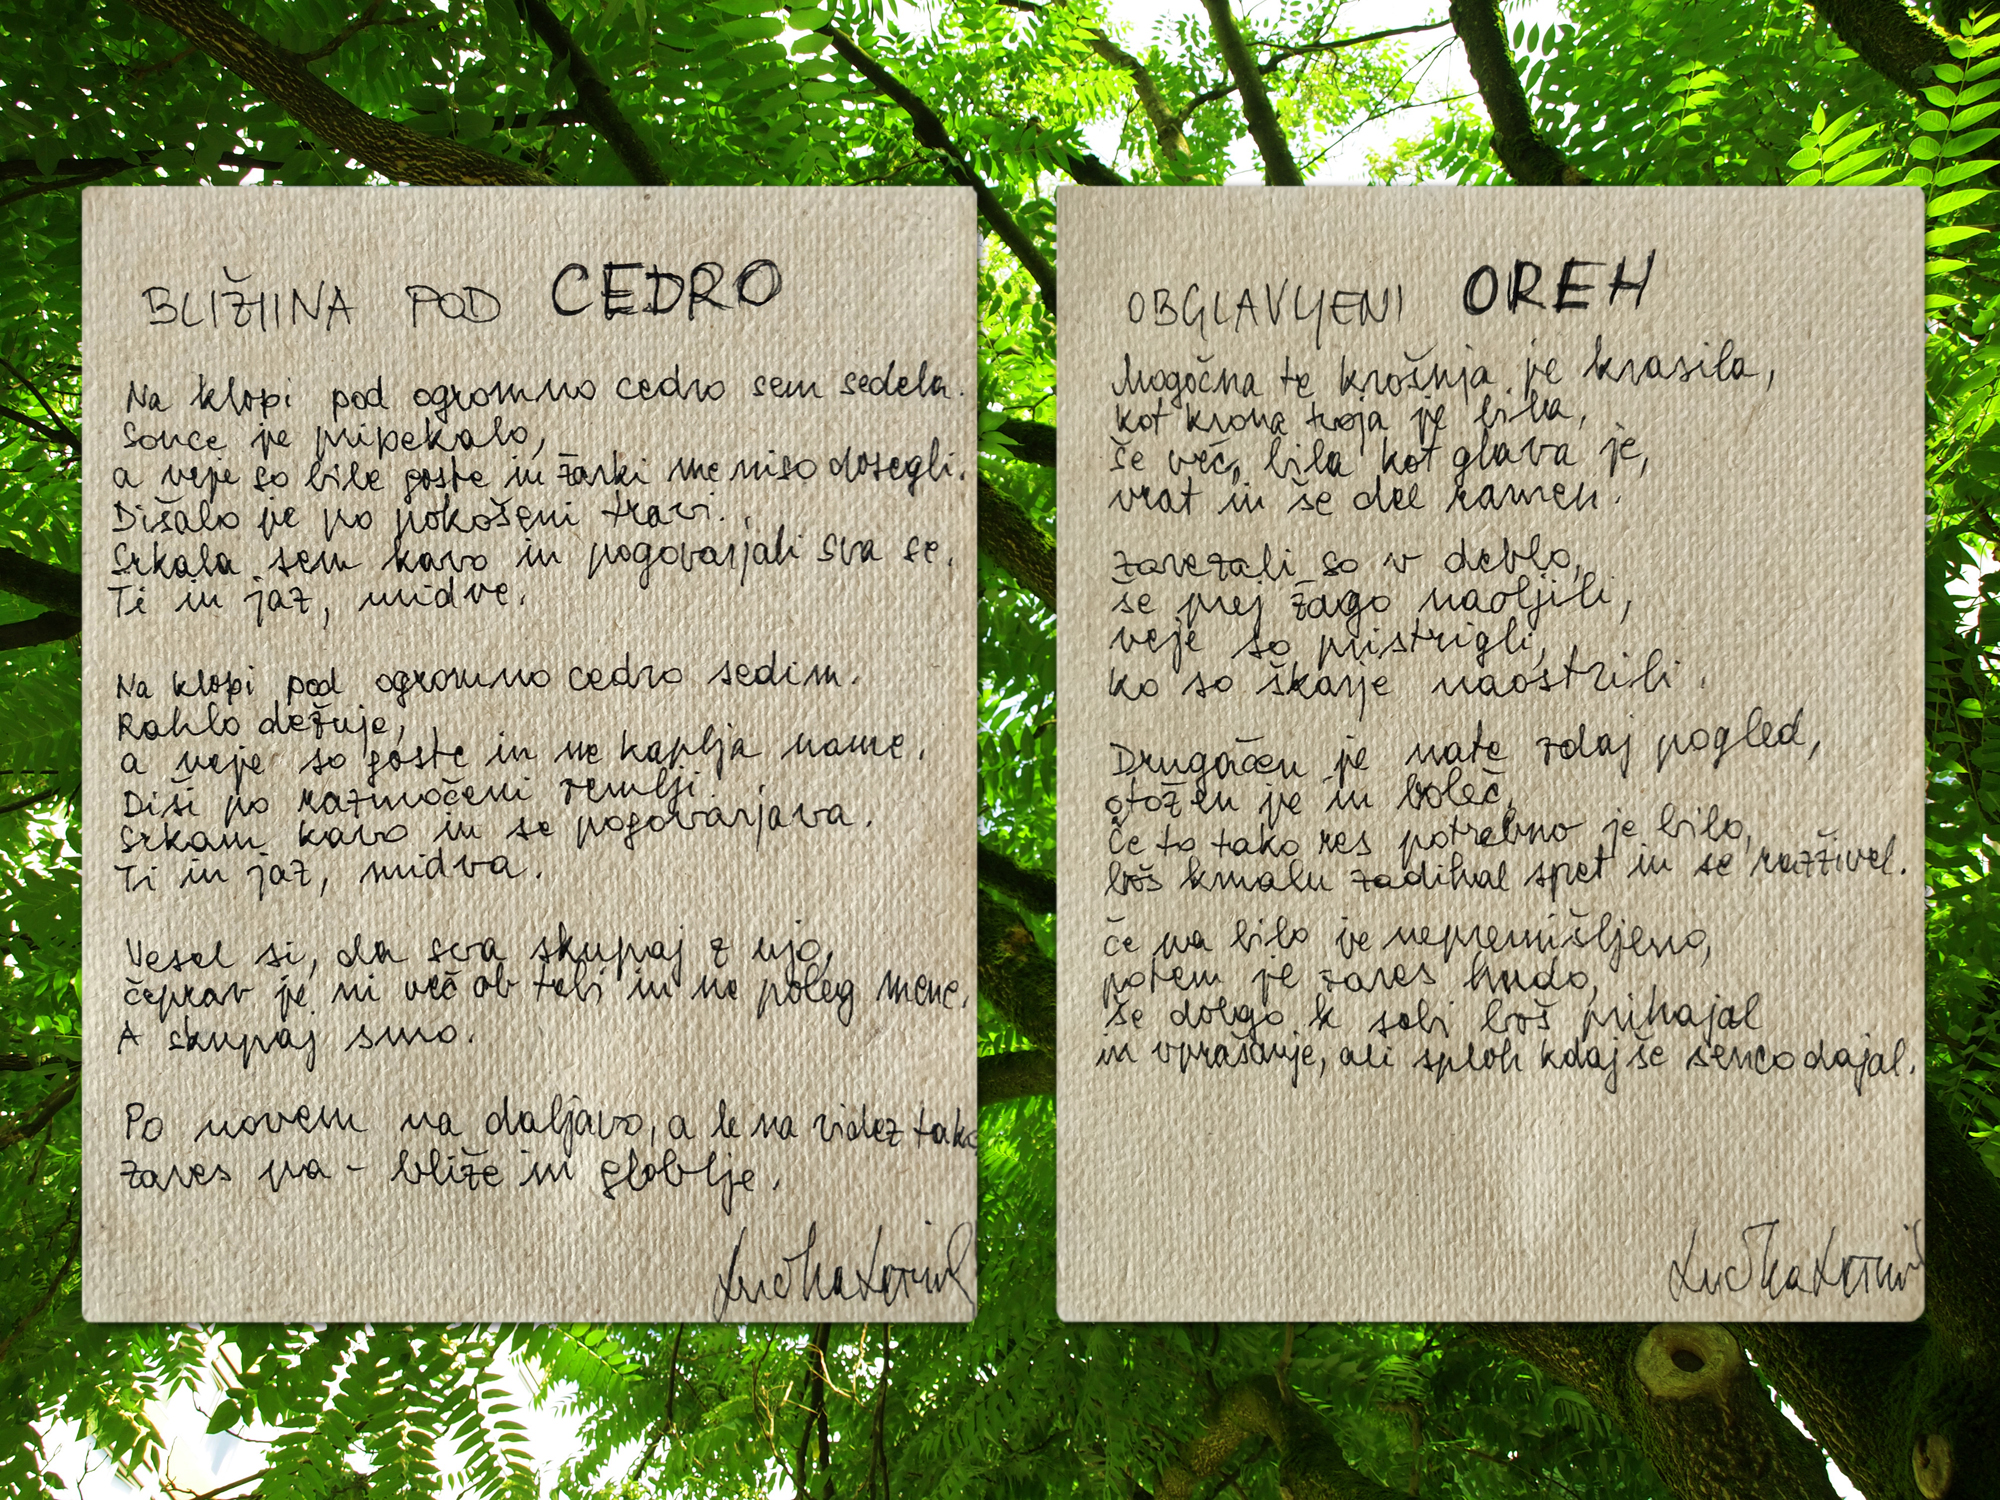 BLIŽIINA POD CEDRO
Na klopi pod ogromno cedro sem sedela.
Sonce je pripekalo,
a veje so bile goste in žarki me niso dosegli.
Dišalo je po pokošeni travi.
Srkala sem kavo in pogovarjali sva se.
Ti in jaz, midve.
Na klopi pod ogromno cedro sedim.
Rahlo dežuje,
a veje so goste in ne kaplja name.
Diši po razmočeni zemlji.
Srkam kavo in se pogovarjava.
Ti in jaz, midva.
Vesel si, da sva skupaj z njo,
čeprav je ni več ob tebi in ne poleg mene.
A skupaj smo.
Po novem na daljavo, a le na videz tako
zares pa - bliže in globlje.
OBGLAVLJENI OREH
Mogočna te krošnja je krasila,
kot krona tvoja je bila,
še več, bila kot glava je,
vrat in še del ramen.
Zarezali so v deblo,
še prej žago naoljili,
veje so pristrigli,
ko so škarje naostrili.
Drugačen je nate zdaj pogled,
otožen je in boleč.
Če to tako res potrebno je bilo,
boš kmalu zadihal spet in se razživel.
Če pa bilo je nepremišljeno,
potem je zares hudo,
še dolgo k sebi boš prihajal
in vprašanje, ali sploh kdaj še senco dajal.